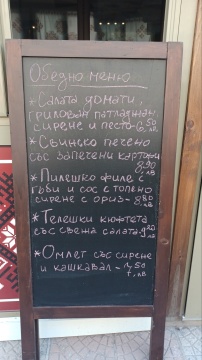 Обедно меню
* Салата домати,
грилован патладжан
сирене и песто-6,50 лв.
* Свинско печено
със запечени картофи
8,90 лв
* Пилешко филе с
гъби и сос с топено
сирене с ориз-8,80 лв
* Телешки кюфтета
със свежа салата-9,20 лв
* Омлет със сирене
и кашкавал-7,50 лв.